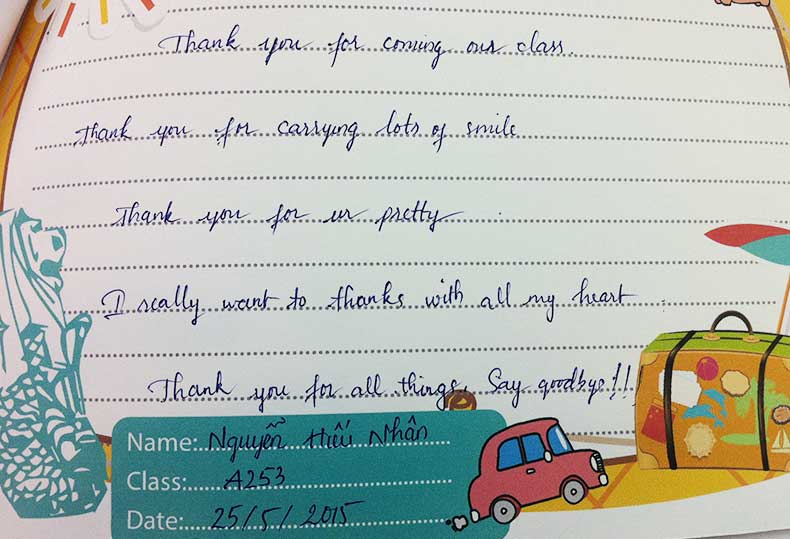 Thank you for coming our class.
Thank you for carrying lots of smile
Thank you for ur pretty
I really want to thanks with all my heart.
Thank you for all things, Say goodbye!!
Name: Nguyễn Hiếu Nhân
Class: A253
Date: 25/5/2015